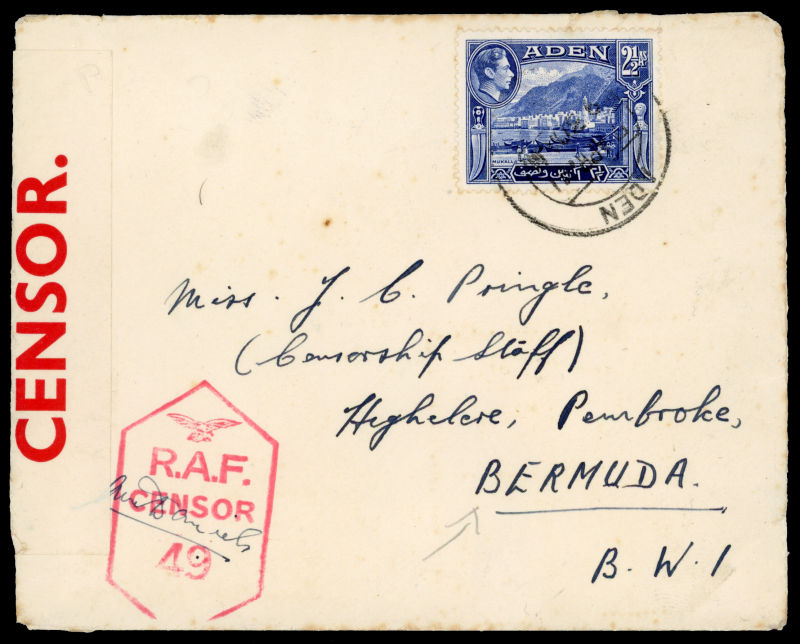 ADEN
2½ AS
MUKALLA
DEN
Miss. J. C. Pringle,
(Censorship Staff)
Highclere, Pembroke,
BERMUDA.
B. W. I
CENSOR.
R.A.F.
CENSOR
49